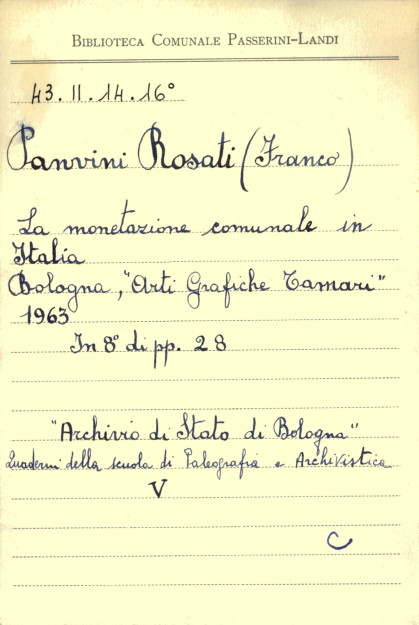 BIBLIOTECA COMUNALE PASSERINI-LANDI
43.II.14.16°
Panvini Rosati (Franco)
La monetazione comunale in
Italia
Bologna, "Arti Grafiche Tamari"
1963
In 8° di pp. 28
"Archivio di Stato di Bologna"
Quaderni della scuola di Paleografia e Archivistica
V
C